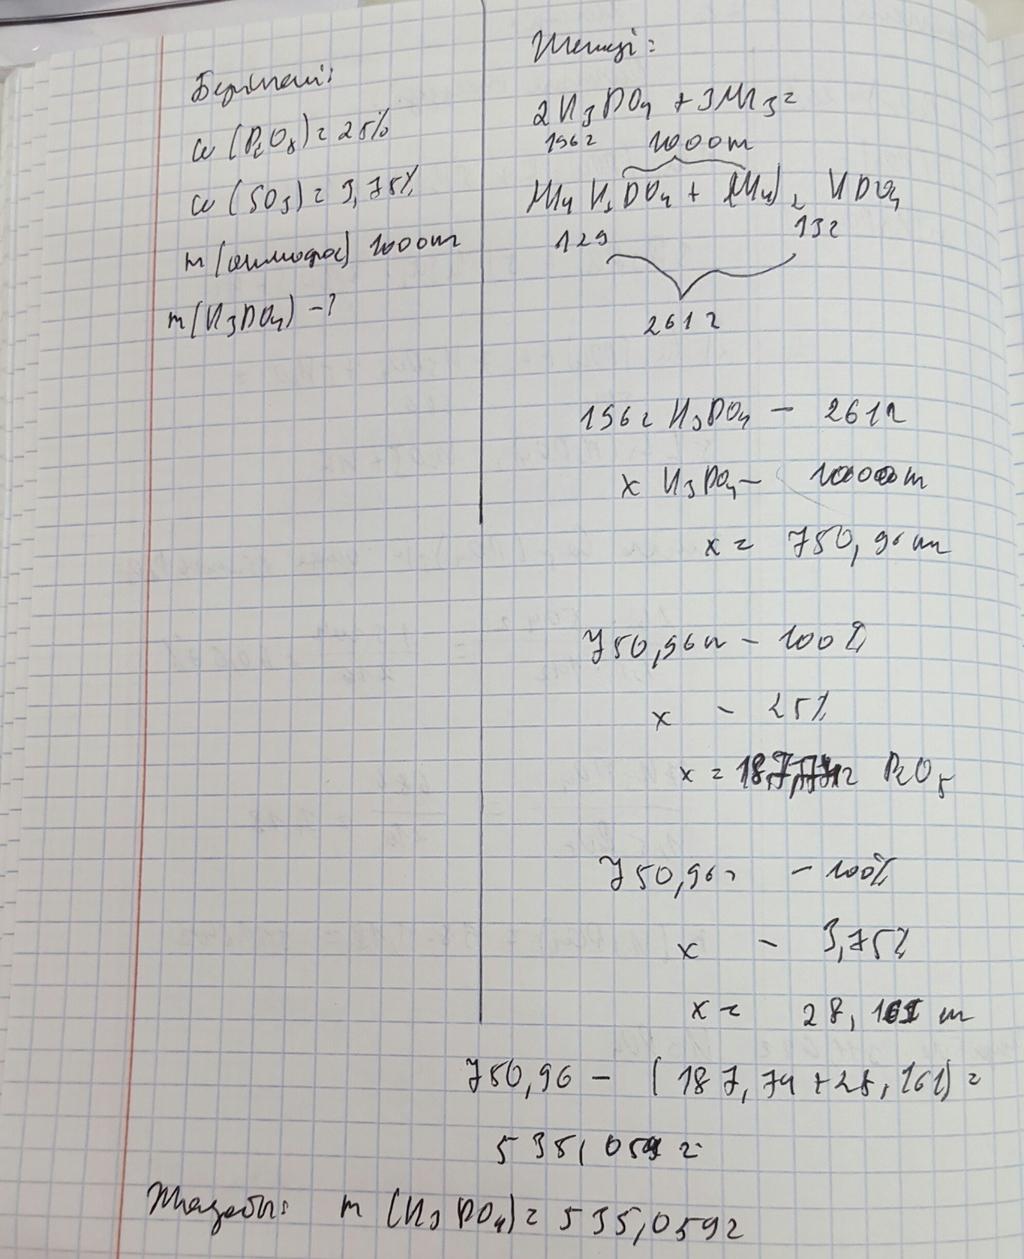 Берілгені:
ω (P₂O₅) = 25%
ω (SO₃) = 3,75%
m (аммофос) 1000т
m (H₃PO₄) - ?
Шешуі:
2H₃PO₄ + 3NH₃ =
196г 1000т
NH₄H₂PO₄ + (NH₄)₂HPO₄
129 132
261г
196г H₃PO₄ - 261г
x H₃PO₄ - 1000т
x = 750,96т
750,96т - 100%
x - 25%
x = P₂O₅
750,96т - 100%
x - 3,75%
x = 28,161 т
750,96 - (187,74 + 28,161) =
535,059 г
Жауабы: m (H₃PO₄) = 535,059г